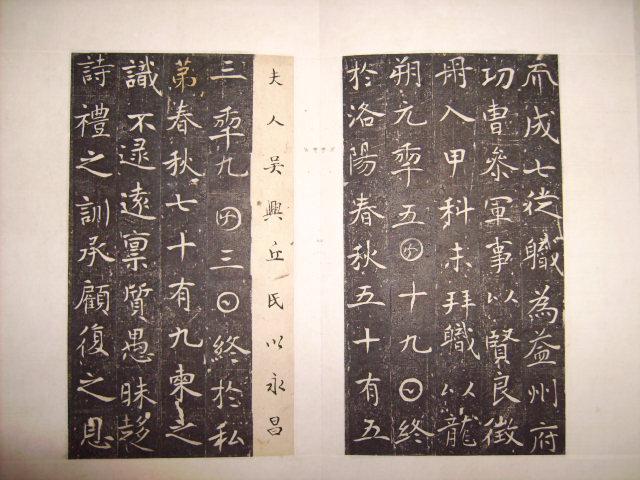 而成七從職為益州府
功曹參軍事以賢良徵
冊入甲科未拜職以龍
朔元𠡦五囝十九𡆠終
於洛陽春秋五十有五
夫人吳興丘氏以永昌
三𠡦九囝三𡆠終於私
第春秋七十有九柬之
識不逮遠稟質愚昧趍
詩禮之訓承顧復之恩